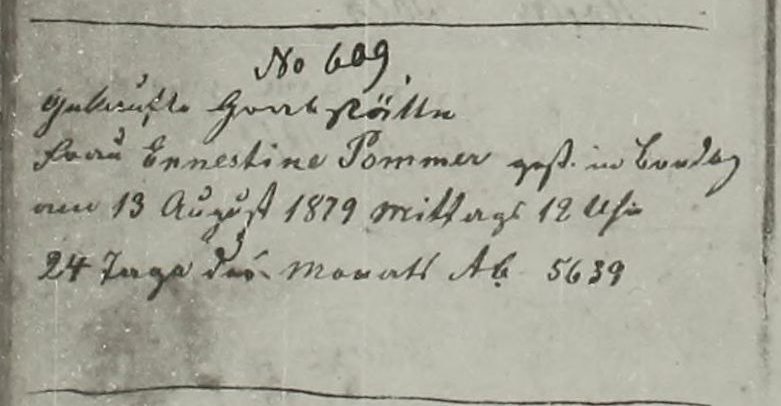 No 609.
Gekaufte Grabstätte
Frau Ernestine Pommer gest. in
am 13 August 1879 Mittags 12 Uhr
24 Tage des Monats Ab 5639